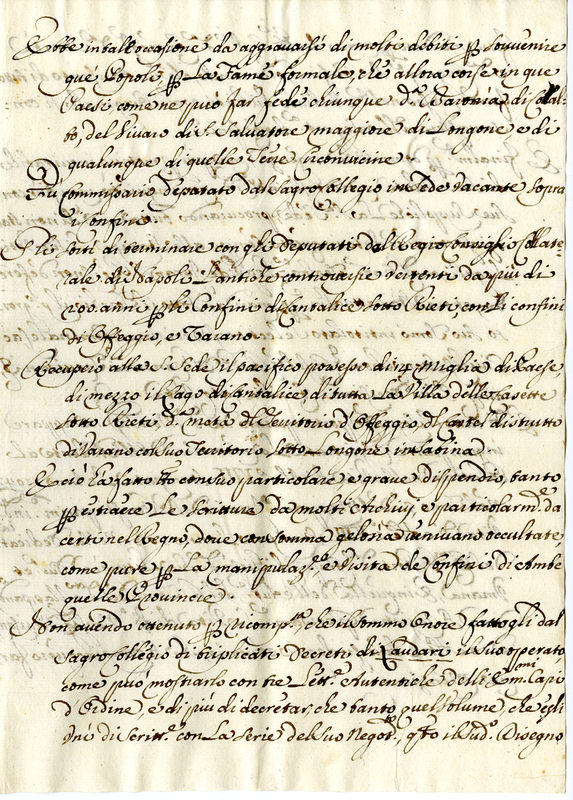 Ebbe in tal' occasione da aggravarsi di molti debiti p sovvenire
que' Popoli p La fame formale, che allora corse in que'
Paesi come ne può far fede chiunque d.ª Baronia di Collal-
to, del Vicario di S. Salvatore maggiore di Longone e di
qualunque di quelle Terre Circonvicine.
Fu Commissario deputato dal Sagro Collegio in Sede Vacante sopra
i Confini.
Gli sortì di terminare con gli Deputati del Regio Consiglio Colla-
rale di Napoli L'antiche controversie vertenti da più di
200. anni p li Confini di Cantalice sotto Rieti, con li confini
di Offeggio, e Vaiano.
Recuperò alla S. Sede il pacifico possesso di Miglia di Paese,
di mezzo il Lago di Cantalice, di tutta La Villa delle Casette
sotto Rieti, d.ª metà di Territorio d'Offeggio, del Castel distrutto
di Vaiano col suo Territorio sotto Longone in Sabina
E ciò ha fatto con suo particolare e grave dispendio, tanto
p estraere Le Scritture da molti Archivj, e particolarm.e da
certi nel Regno, dove con somma gelosia venivano occultate
come pure p La manipulaz.e, e Visita de Confini di Ambe
quelle Provincie.
Non avendo ottenuto p ricomp.sa che il sommo Onore fattogli dal
Sagro Collegio di triplicati Decreti di Laudari il suo operato
come può mostrarlo con tre Lett.e Autentiche delli Em.mi Capi
d'Ordine, e di più di decretar, che tanto quel Volume, che egli
di Scritt.e con La serie del suo Negot.o, q.to il Sud.o Disegno